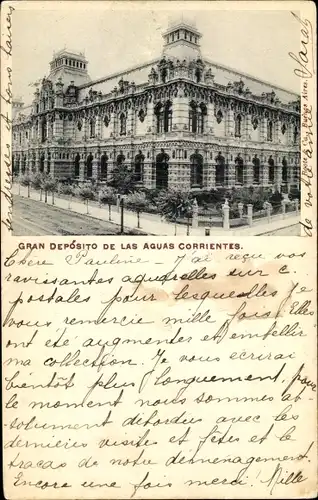 GRAN DEPÓSITO DE LAS AGUAS CORRIENTES.
Chère Pauline — J'ai reçu vos
ravissantes aquarelles sur c.
postales pour lesquelles je
vous remercie mille fois. Elles
ont été augmenter et embellir
ma collection. Je vous ecrirai
bientôt plus longuement, pour
le moment nous sommes ab-
solument débordus avec les
dernières visites et fêtes et le
tracas de notre déménagement.
Encore une fois merci! Mille
tendresses
de votre
Sarah